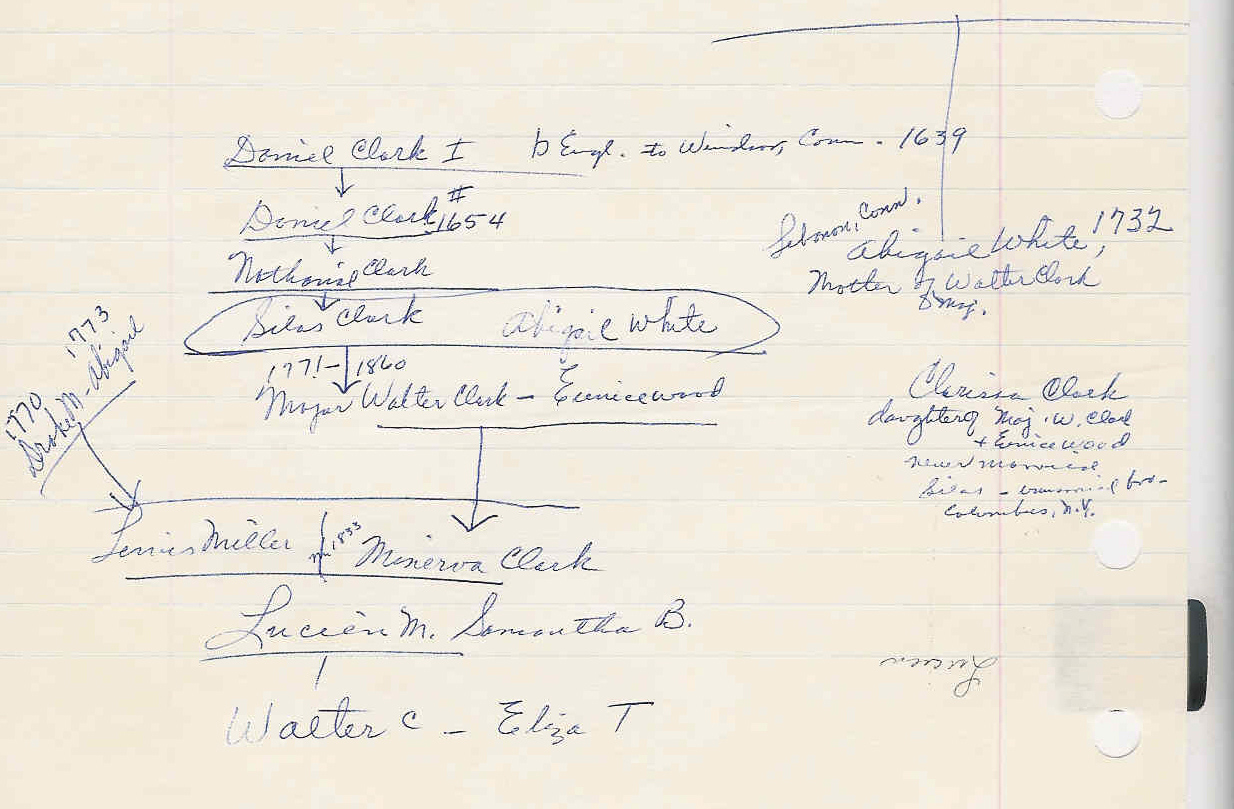 Daniel Clark I b Engl. to Windsor, Conn - 1639
Daniel Clark # 1654
Nathaniel Clark
Silas Clark Abigail White
1771- 1860
Major Walter Clark - Eunice Wood
1770 1773
Drake M - Abigail
Lewis Miller m 1833 Minerva Clark
Lucien M. Samantha B.
Walter C - Eliza T
Lebanon, Conn.
Abigail White, 1732
Mother of Walter Clark
Maj.
Clarissa Clark
daughter of Maj. W. Clark
+ Eunice Wood
never married
Silas - bro-
Columbus, N.Y.
Lucien